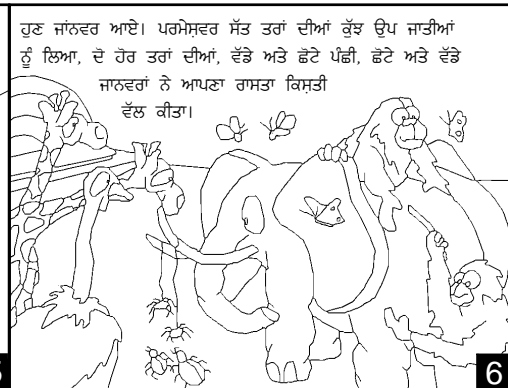 ਹੁਣ ਜਾਂਨਵਰ ਆਏ। ਪਰਮੇਸ਼ਵਰ ਸੱਤ ਤਰਾਂ ਦੀਆਂ ਕੁੱਝ ਉਪ ਜਾਤੀਆਂ
ਨੂੰ ਲਿਆ, ਦੋ ਹੋਰ ਤਰਾਂ ਦੀਆਂ, ਵੱਡੇ ਅਤੇ ਛੋਟੇ ਪੰਛੀ, ਛੋਟੇ ਅਤੇ ਵੱਡੇ
ਜਾਨਵਰਾਂ ਨੇ ਆਪਣਾ ਰਾਸਤਾ ਕਿਸ਼ਤੀ
ਵੱਲ ਕੀਤਾ।
6